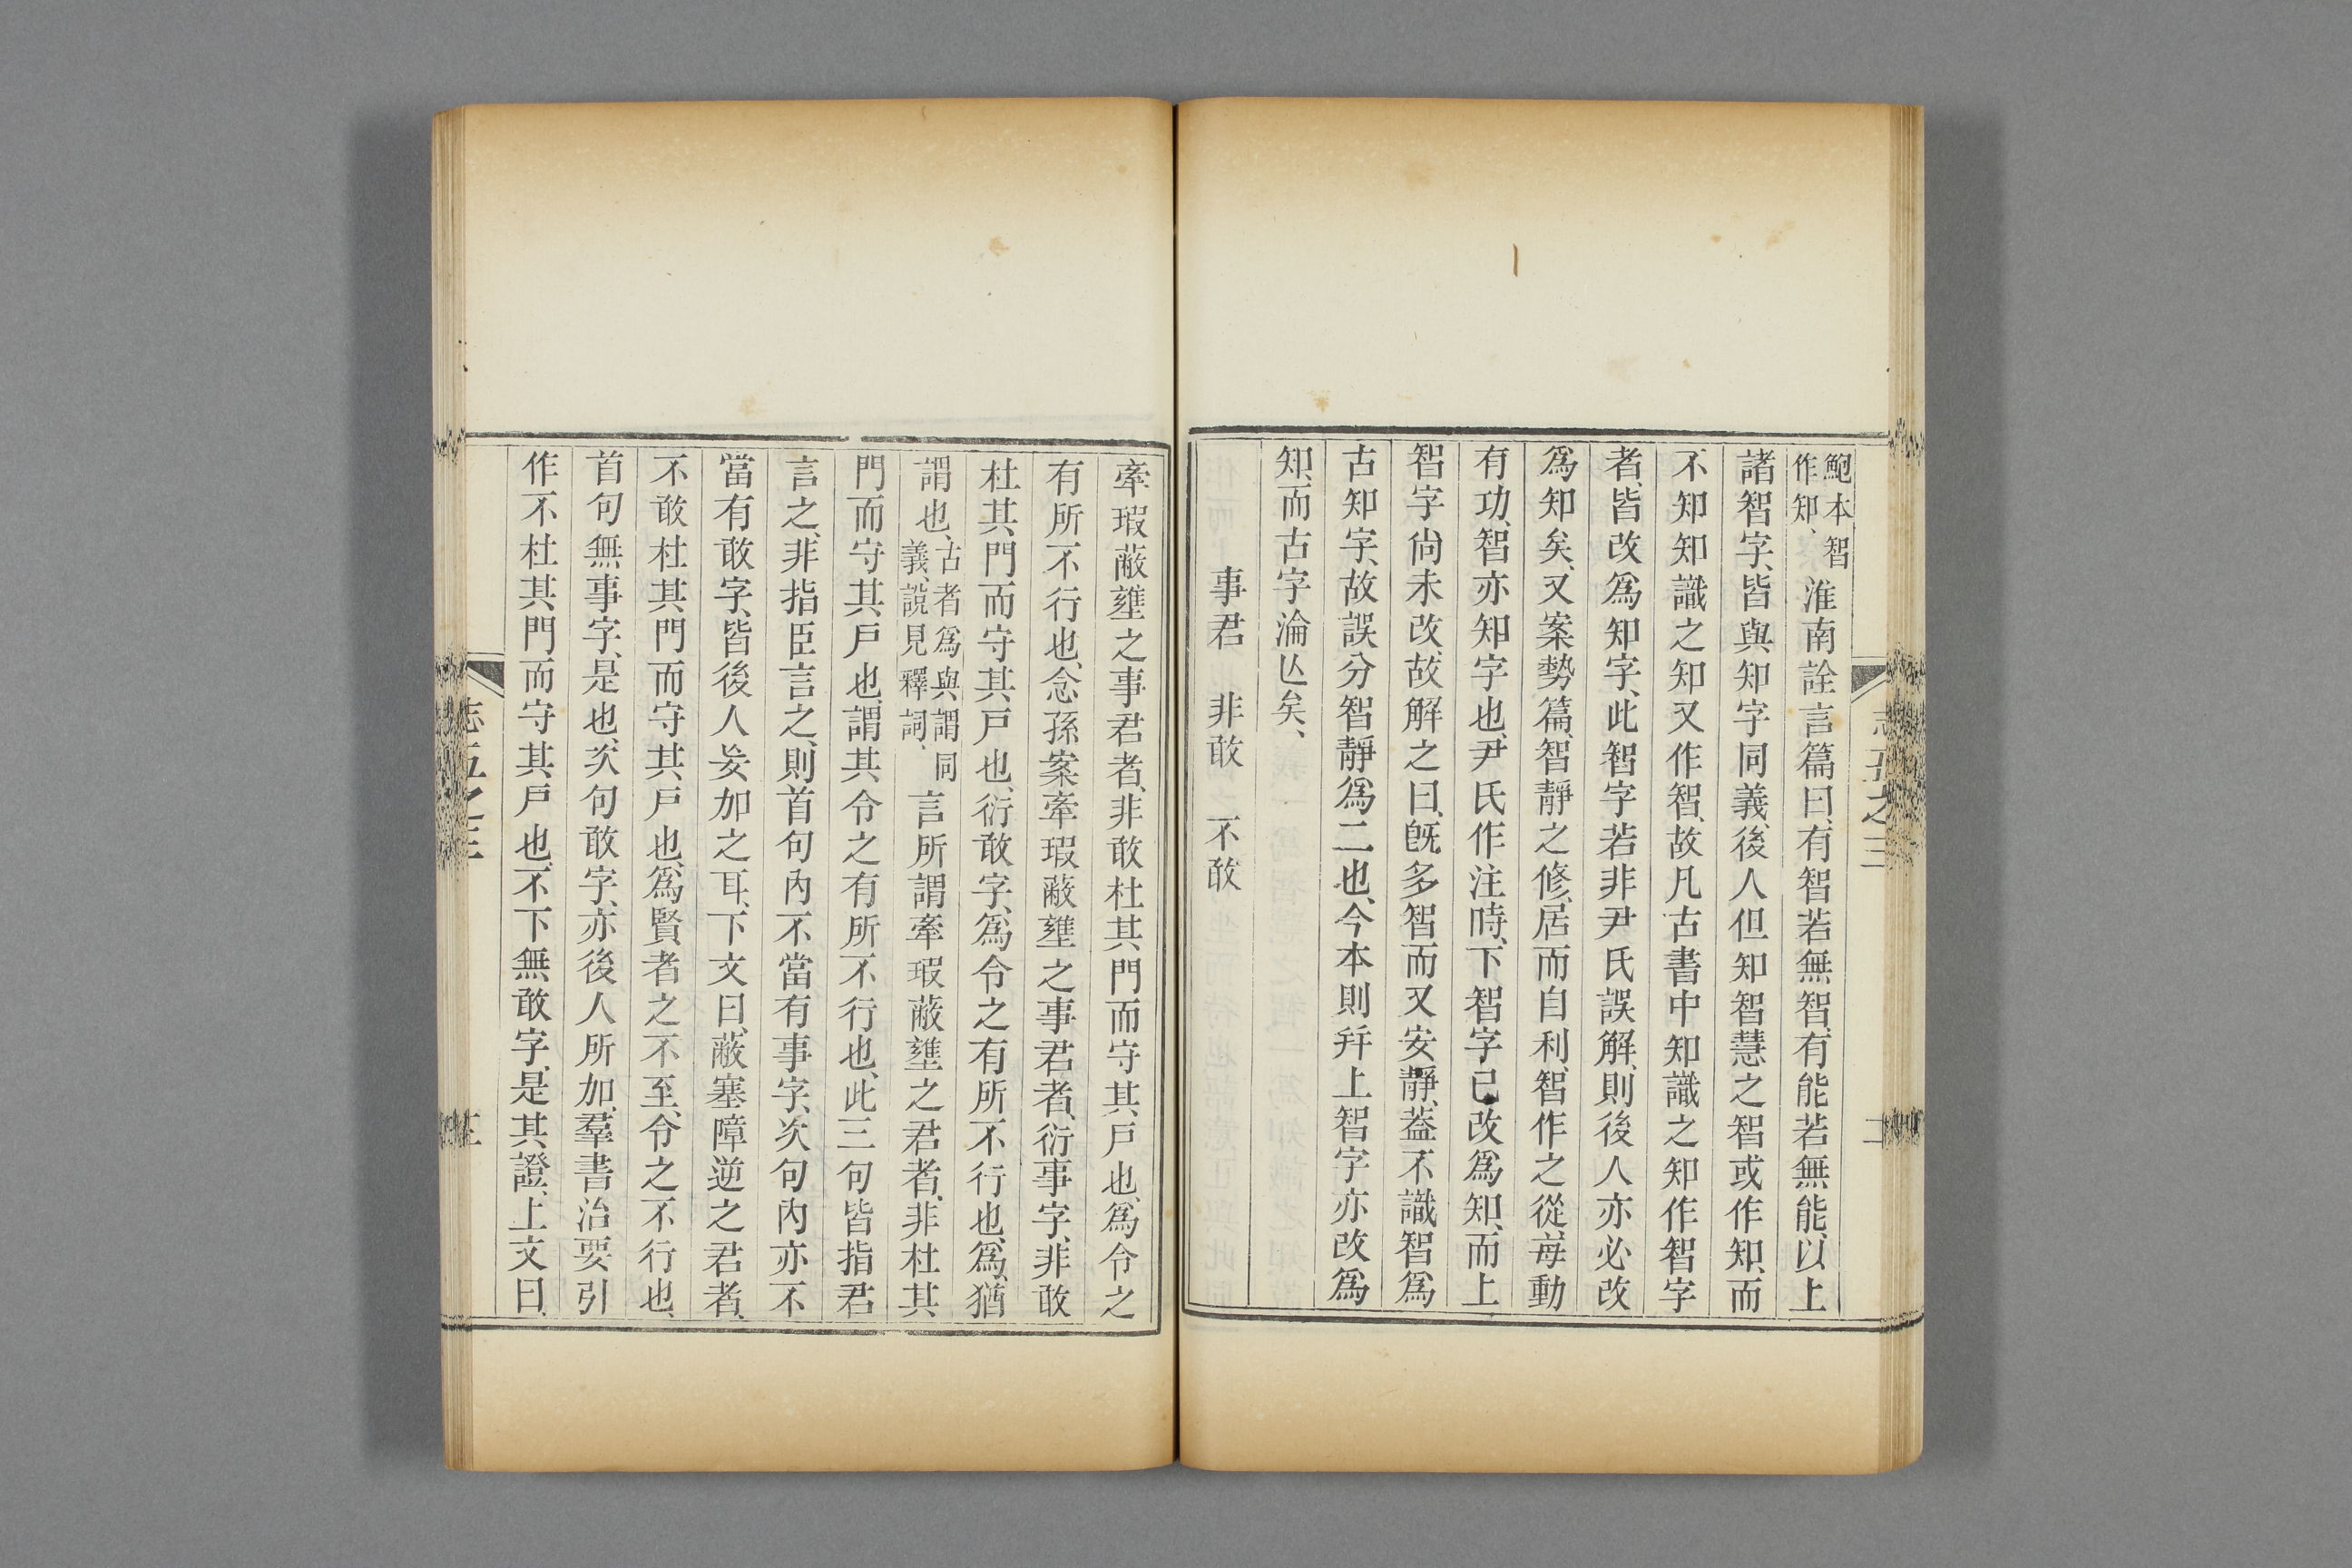 鮑本智作知、淮南詮言篇曰、有智若無智、有能若無能、以上
諸智字、皆與知字同義、後人但知智慧之智或作知、而
不知知識之知又作智、故凡古書中知識之知作智字
者、皆改爲知字、此智字若非尹氏誤解、則後人亦必改
爲知矣、又案勢篇、智靜之修、居而自利、智作之從、每動
有功、智亦知字也、尹氏作注時、下智字已改爲知、而上
智字尙未改、故解之曰、旣多智而又安靜、葢不識智爲
古知字、故誤分智靜爲二也、今本則幷上智字亦改爲
知、而古字淪亾矣、
事君　非敢　不敢
牽瑕蔽壅之事君者、非敢杜其門而守其戸也、爲令之
有所不行也、念孫案牽瑕蔽壅之事君者、衍事字、非敢
杜其門而守其戸也、衍敢字、爲令之有所不行也、爲、猶
謂也、古者爲與謂同義、說見釋詞、言所謂牽瑕蔽壅之君者、非杜其
門而守其戸也、謂其令之有所不行也、此三句皆指君
言之、非指臣言之、則首句內不當有事字、次句內亦不
當有敢字、皆後人妄加之耳、下文曰、蔽塞障逆之君者、
不敢杜其門而守其戸也、爲賢者之不至、令之不行也、
首句無事字、是也、次句敢字、亦後人所加、羣書治要引
作不杜其門而守其戸也、不下無敢字、是其證、上文曰、